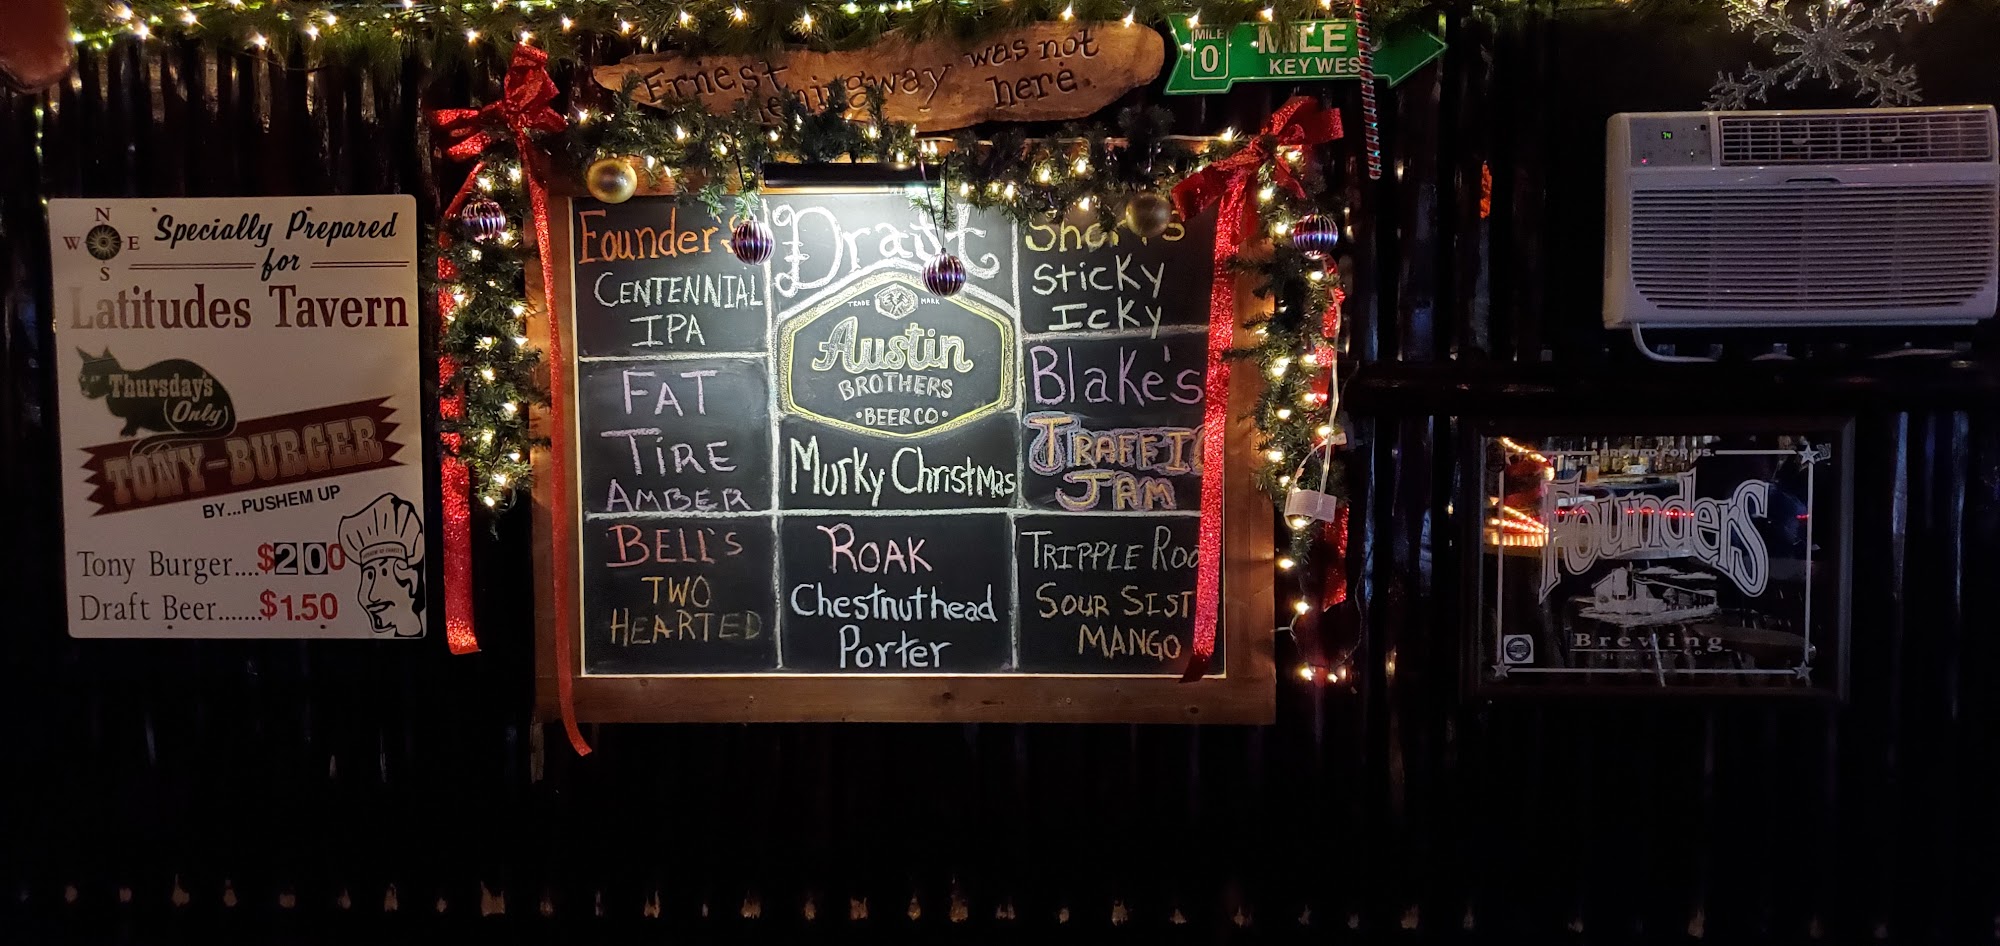 Ernest
Hemingway was not
here.
MILE 0
MILE 0
KEY WES
N
W E
S
Specially Prepared
for
Latitudes Tavern
Thursday's
(Only)
TONY-BURGER
BY...PUSHEM UP
Tony Burger....$2.00
Draft Beer.......$1.50
Founder's
CENTENNIAL
IPA
FAT
TIRE
AMBER
BELL'S
TWO
HEARTED
Draft
TRADE MARK
Austin
BROTHERS
•BEER CO•
Murky Christmas
ROAK
Chestnuthead
Porter
Short's
Sticky
Icky
Blake's
TRAFFIC
JAM
TRIPPLE ROO
SOUR SIST
MANGO
74
BREWED FOR US.
Founders
Brewing